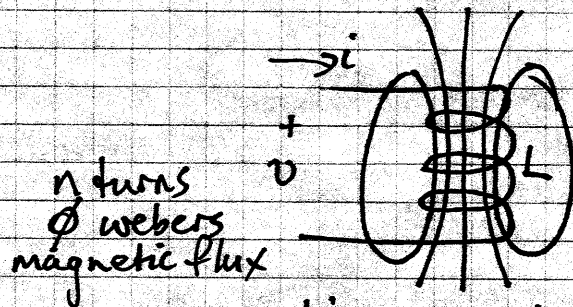 → i
+
v
L
n turns
φ webers
magnetic flux